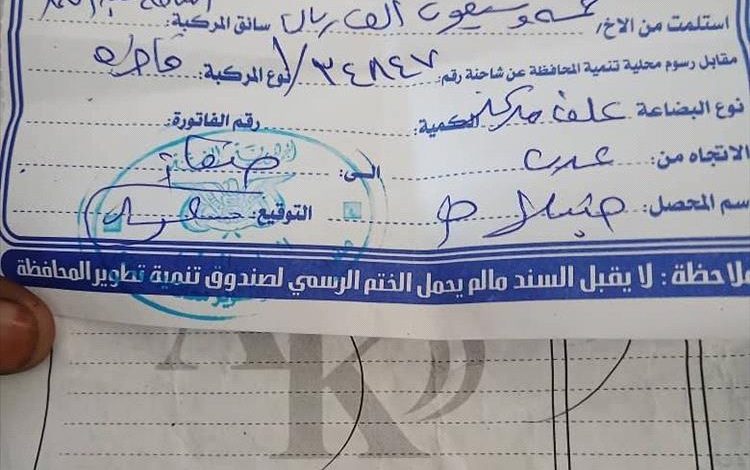 استلمت من الاخ/ خمسه وسبعون الف ريال سائق المركبة:
مقابل رسوم محلية تنمية المحافظة عن شاحنة رقم: ٣٤٨٤٧/١ نوع المركبة: قاطره
نوع البضاعة علف مركز الكمية: رقم الفاتورة:
الاتجاه من: عدن الى: صنعاء
سم المحصل: التوقيع:
لاحظة: لا يقبل السند مالم يحمل الختم الرسمي لصندوق تنمية تطوير المحافظة
AK